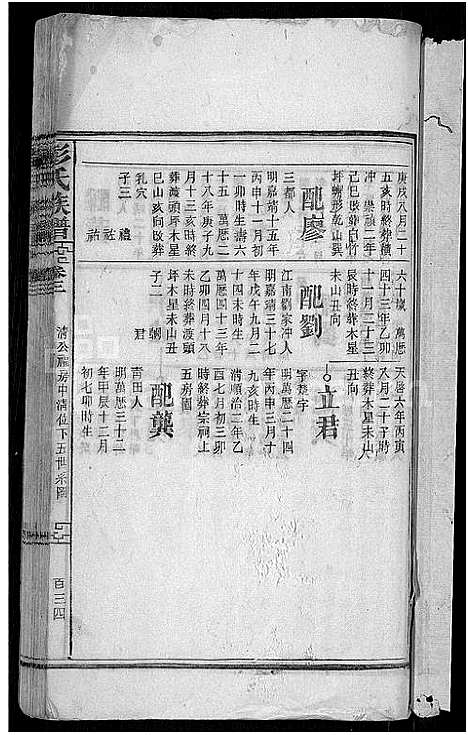 彭氏族譜
卷三
清公
房中清位下五世系圖
百三四
庚戌八月二十
五亥時終葬橫
冲 崇禎二年
己巳改葬白竹
坪螃形乾山巽
向
配廖
三都人
明嘉靖十五年
丙申十一月初
一卯時生壽六
十五 萬曆二
十八年庚子九
月十三亥時終
葬渡頭坪木星
巳山亥向改葬
孔穴
子三
禮
社
祜
六十歲 萬曆
四十三年乙卯
十一月二十三
辰時終葬木星
未山丑向
配劉
江南劉家冲人
明嘉靖三十七
年戊午九月二
十四未時生
萬曆四十三年
乙卯四月十八
未時終葬渡頭
坪木星未山丑
子二
朝
君
天啓六年丙寅
八月二十子時
終葬木星未山
丑向
立君
字楚宇
明萬曆二十四
年丙申三月十
九亥時生
清順治二年乙
酉七月初三卯
時終葬宗祠上
五房園
配龔
青田人
明萬曆三十二
年甲辰十二月
初七卯時生